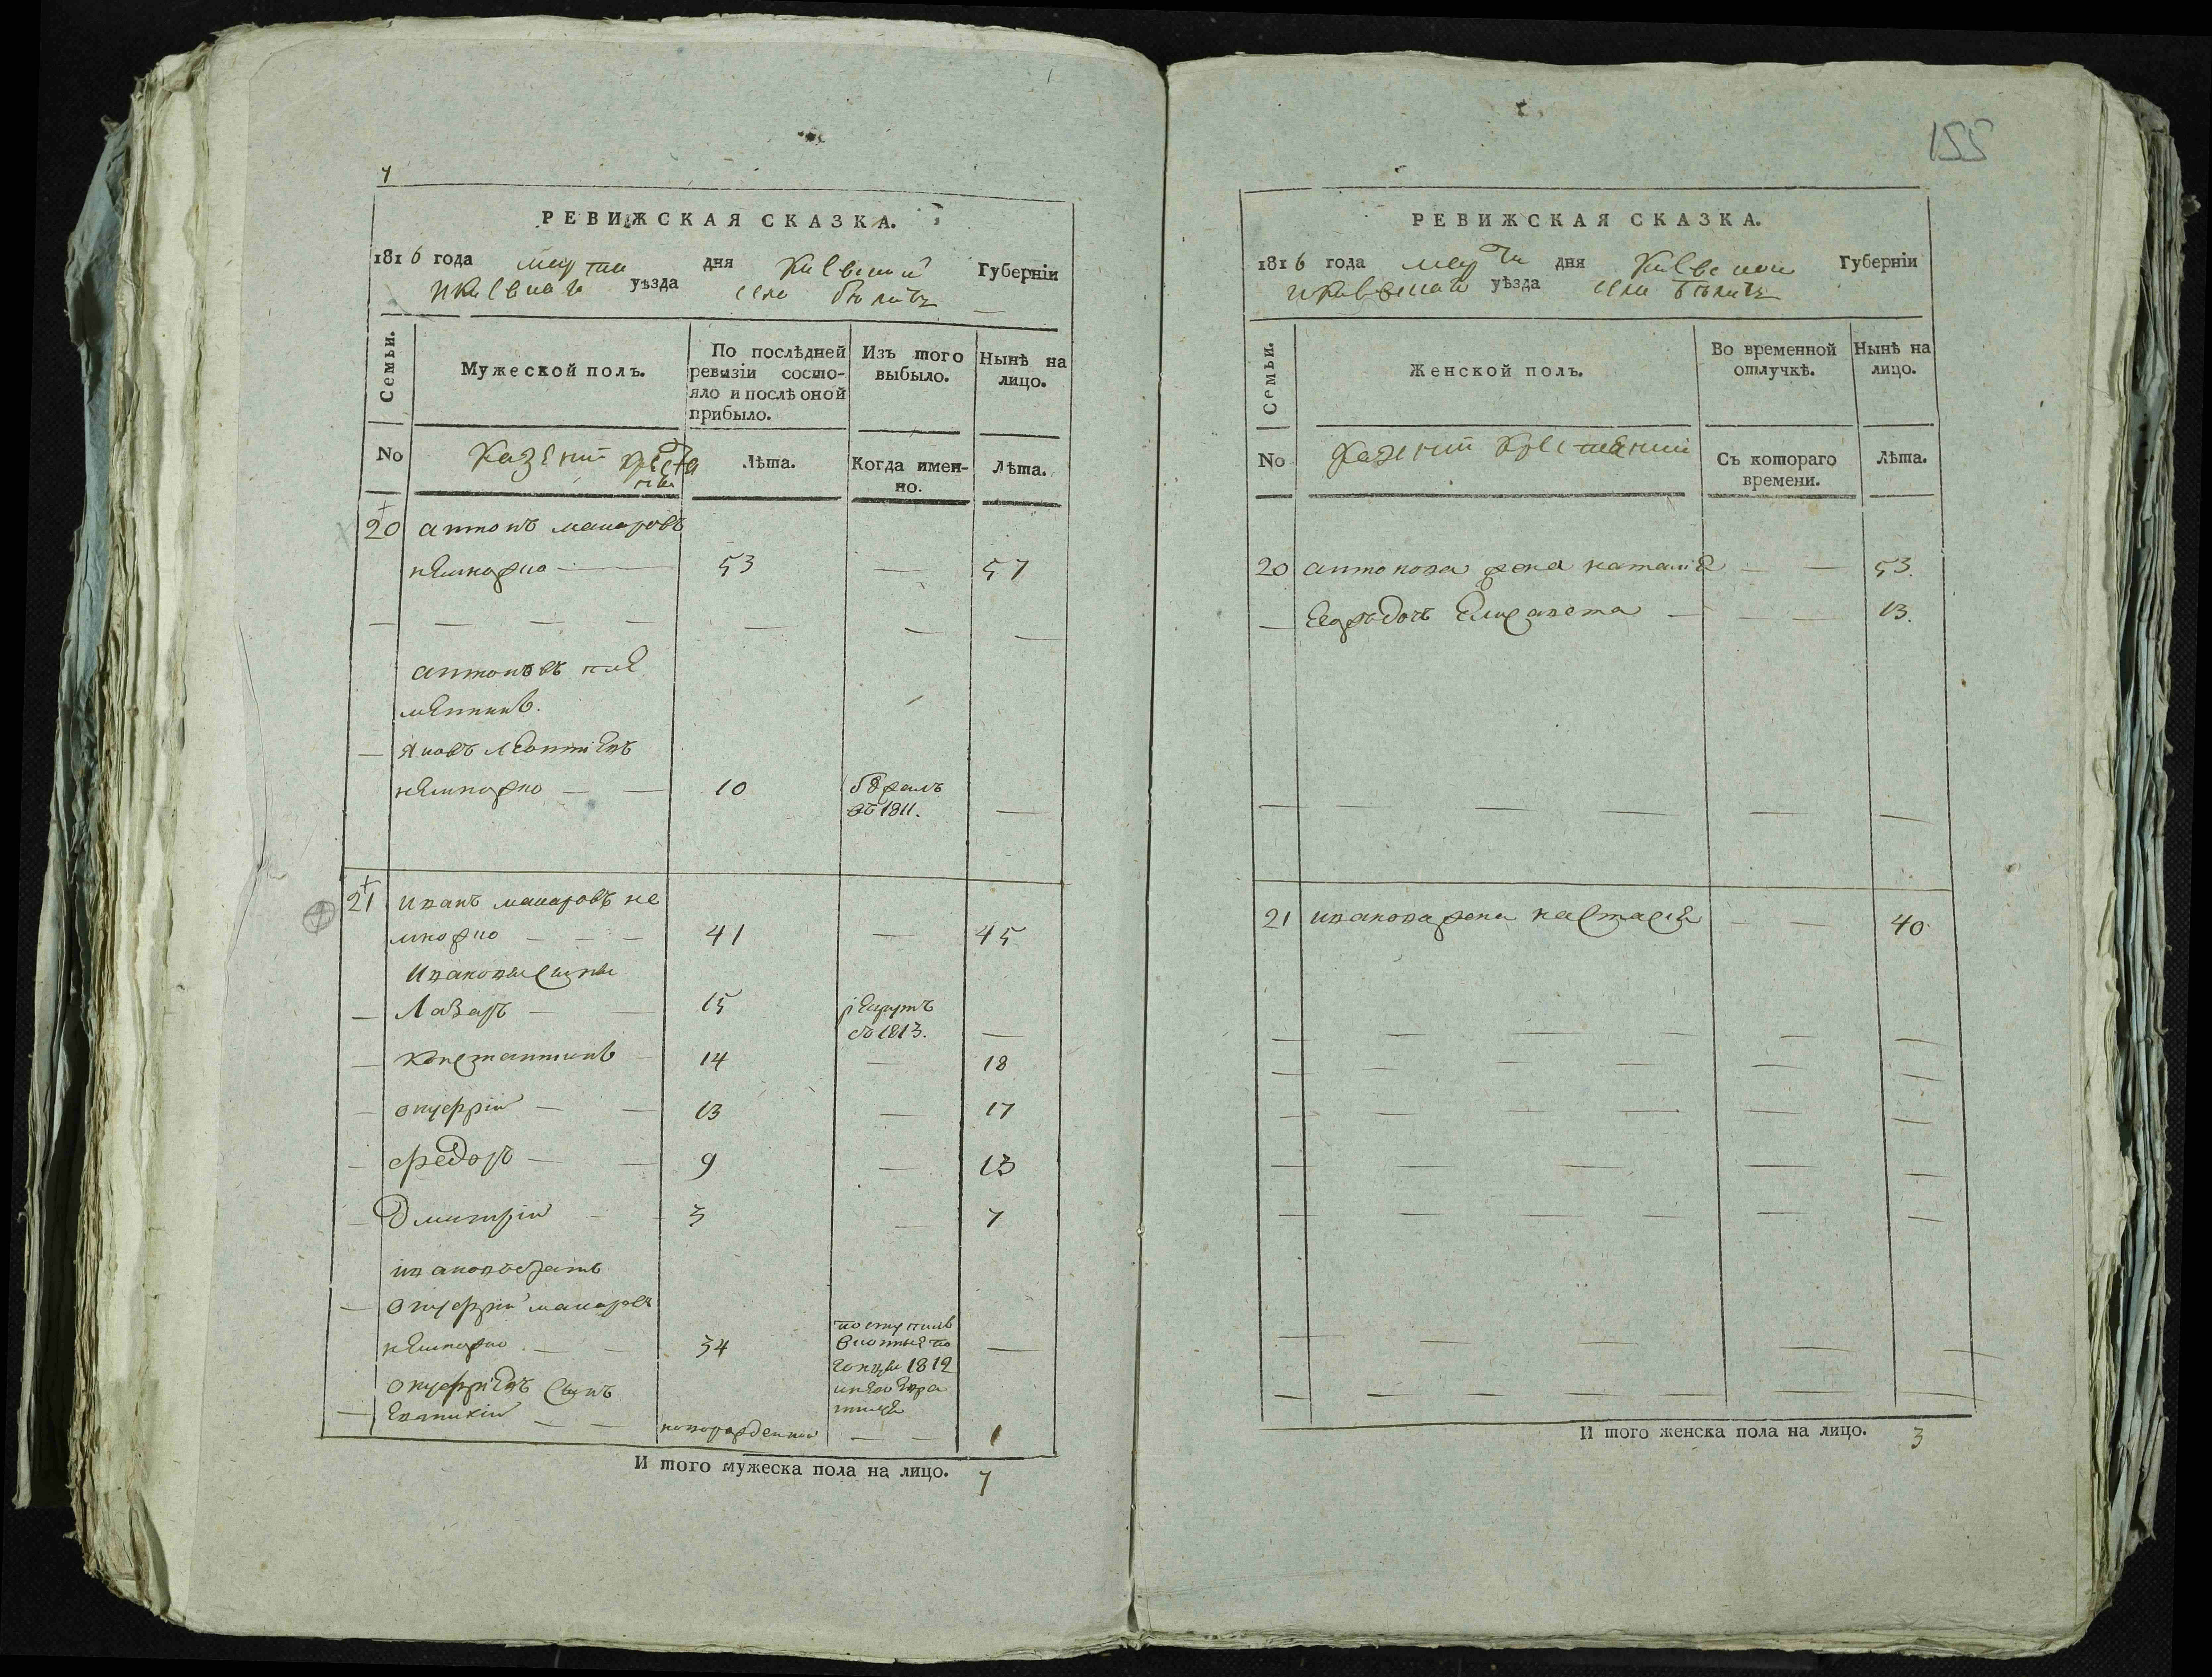 155
РЕВИЖСКАЯ СКАЗКА.
1816 года марта дня Киевской Губерніи
уѣзда села
Семьи.
Мужеской полъ.
По послѣдней ревизіи состо-
яло и послѣ оной прибыло.
Изъ того выбыло.
Нынѣ на лицо.
No
Казеній
Лѣта.
Когда имен-
но.
Лѣта.
20 антонъ макаровъ
53 — 57
антоновъ пле
менникъ.
— Яковъ Леонтіевъ
10 бѣжалъ
въ 1811. —
21 иванъ макаровъ не
41 — 45
Ивановы сыны
— Лазаръ — 15 рекрутъ
въ 1813. —
— Константинъ — 14 — 18
— онуфрій — 13 — 17
— федоръ — 9 — 13
— Дмитрій — 3 — 7
ивановъ братъ
— онуфрій макаровъ
34 поступилъ
1812 —
онуфріевъ сынъ
— Евтихій — новорожденной — 1
И того мужеска пола на лицо. 7
РЕВИЖСКАЯ СКАЗКА.
1816 года марта дня Киевской Губерніи
уѣзда села
Семьи.
Женской полъ.
Во временной отлучкѣ.
Нынѣ на лицо.
No
Казеній
Съ котораго времени.
Лѣта.
20 антонова жена наталія — — 53.
— Его дочь Елисавета — — 13.
21 иванова жена настасія — — 40
И того женска пола на лицо. 3